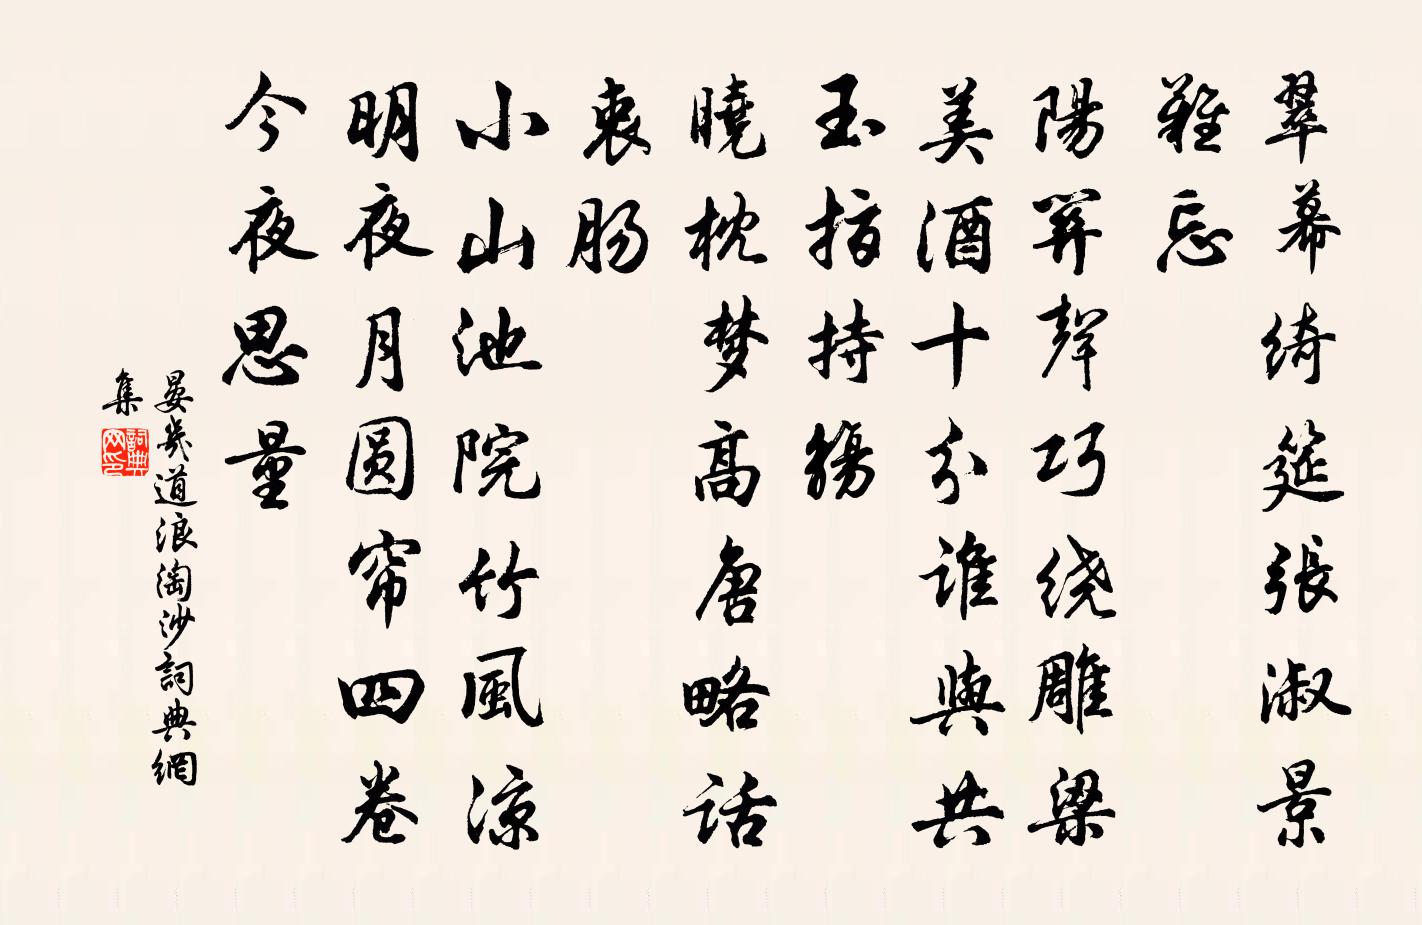 翠幕綺筵張淑景
難忘
陽關聲巧绕雕梁
美酒十分谁與共
玉指持觴
曉枕梦高唐略话
衷肠
小山池院竹風凉
明夜月圆帘四卷
今夜思量
晏幾道浪淘沙詞典網
集
詞典
网印